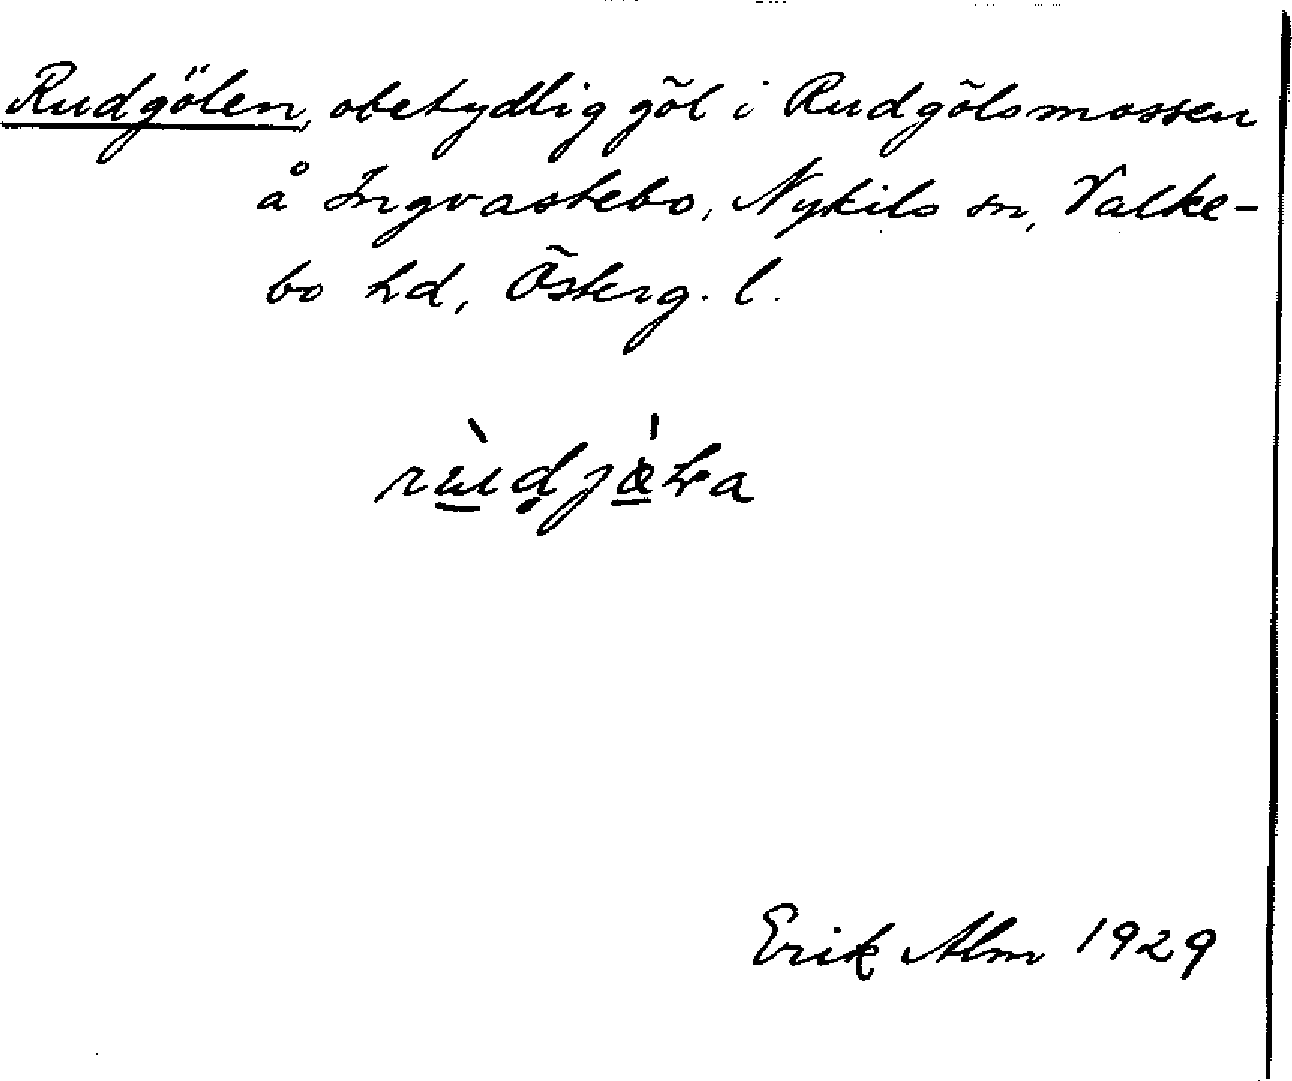 Rudgölen, obetydlig göl i Rudgölsmossen
å Ingvastebo, Nykils sn, Valke-
bo hd, Österg. l.
Erik Alm 1929